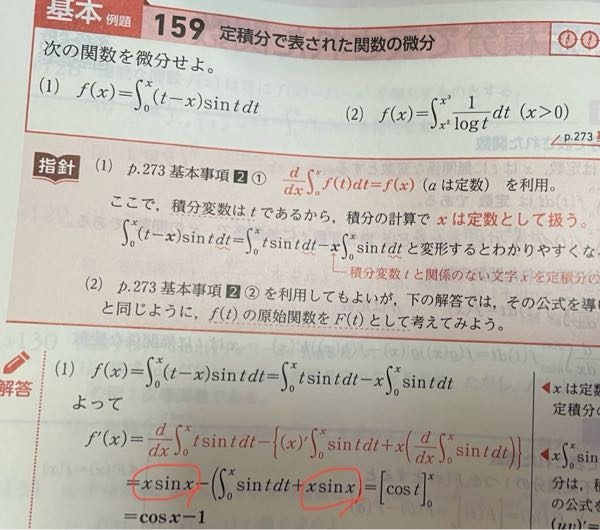 基本 例題 159 定積分で表された関数の微分
次の関数を微分せよ。
(1) f(x)=∫₀ˣ(t−x)sin t dt (2) f(x)=∫_{x²}^{x³} 1/log t dt (x>0)
p.273 基本
指針 (1) p.273 基本事項 2 ① d/dx ∫ₐˣ f(t)dt=f(x) (aは定数) を利用。
ここで，積分変数は t であるから，積分の計算で x は定数として扱う。
∫₀ˣ(t−x)sin t dt=∫₀ˣ t sin t dt−x∫₀ˣ sin t dt と変形するとわかりやすくな
積分変数 t と関係のない文字 x を定積分の
(2) p.273 基本事項 2 ② を利用してもよいが，下の解答では，その公式を導
と同じように，f(t) の原始関数を F(t) として考えてみよう。
解答 (1) f(x)=∫₀ˣ(t−x)sin t dt=∫₀ˣ t sin t dt−x∫₀ˣ sin t dt
◀xは定数
定積分の
よって
f′(x)=d/dx ∫₀ˣ t sin t dt−{(x)′∫₀ˣ sin t dt+x(d/dx ∫₀ˣ sin t dt)}
◀x∫₀ˣ sin
=x sin x−(∫₀ˣ sin t dt+x sin x)=[cos t]₀ˣ
分は，積
=cos x−1
(uv)′=